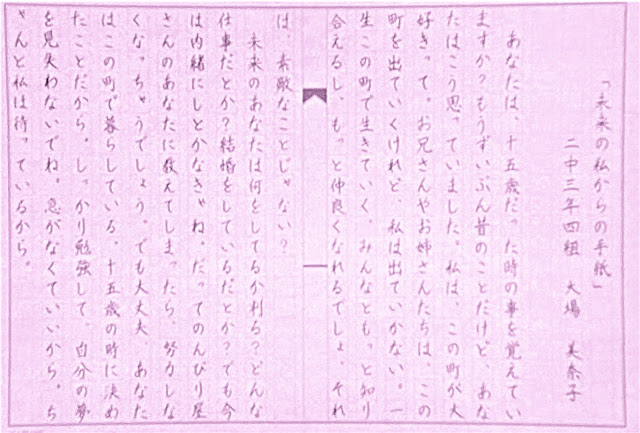 「未来の私からの手紙」
二中三年四組　大場　美奈子
あなたは、十五歳だった時の事を覚えてい
ますか？もうずいぶん昔のことだけど、あな
たはこう思っていました。私は、この町が大
好きって。お兄さんやお姉さんたちは、この
町を出ていくけれど、私は出ていかない。一
生この町で生きていく。みんなともっと知り
合えるし、もっと仲良くなれるでしょ。それ
は、素敵なことじゃない？
未来のあなたは何をしてるか判る？どんな
仕事だとか？結婚をしているだとか？でも今
は内緒にしとかなきゃね。だってのんびり屋
さんのあなたに教えてしまったら、努力しな
くなっちゃうでしょう。でも大丈夫、あなた
はこの町で暮らしている。十五歳の時に決め
たことだから。しっかり勉強して、自分の夢
を見失わないでね。急がなくていいから。ち
ゃんと私は待っているから。